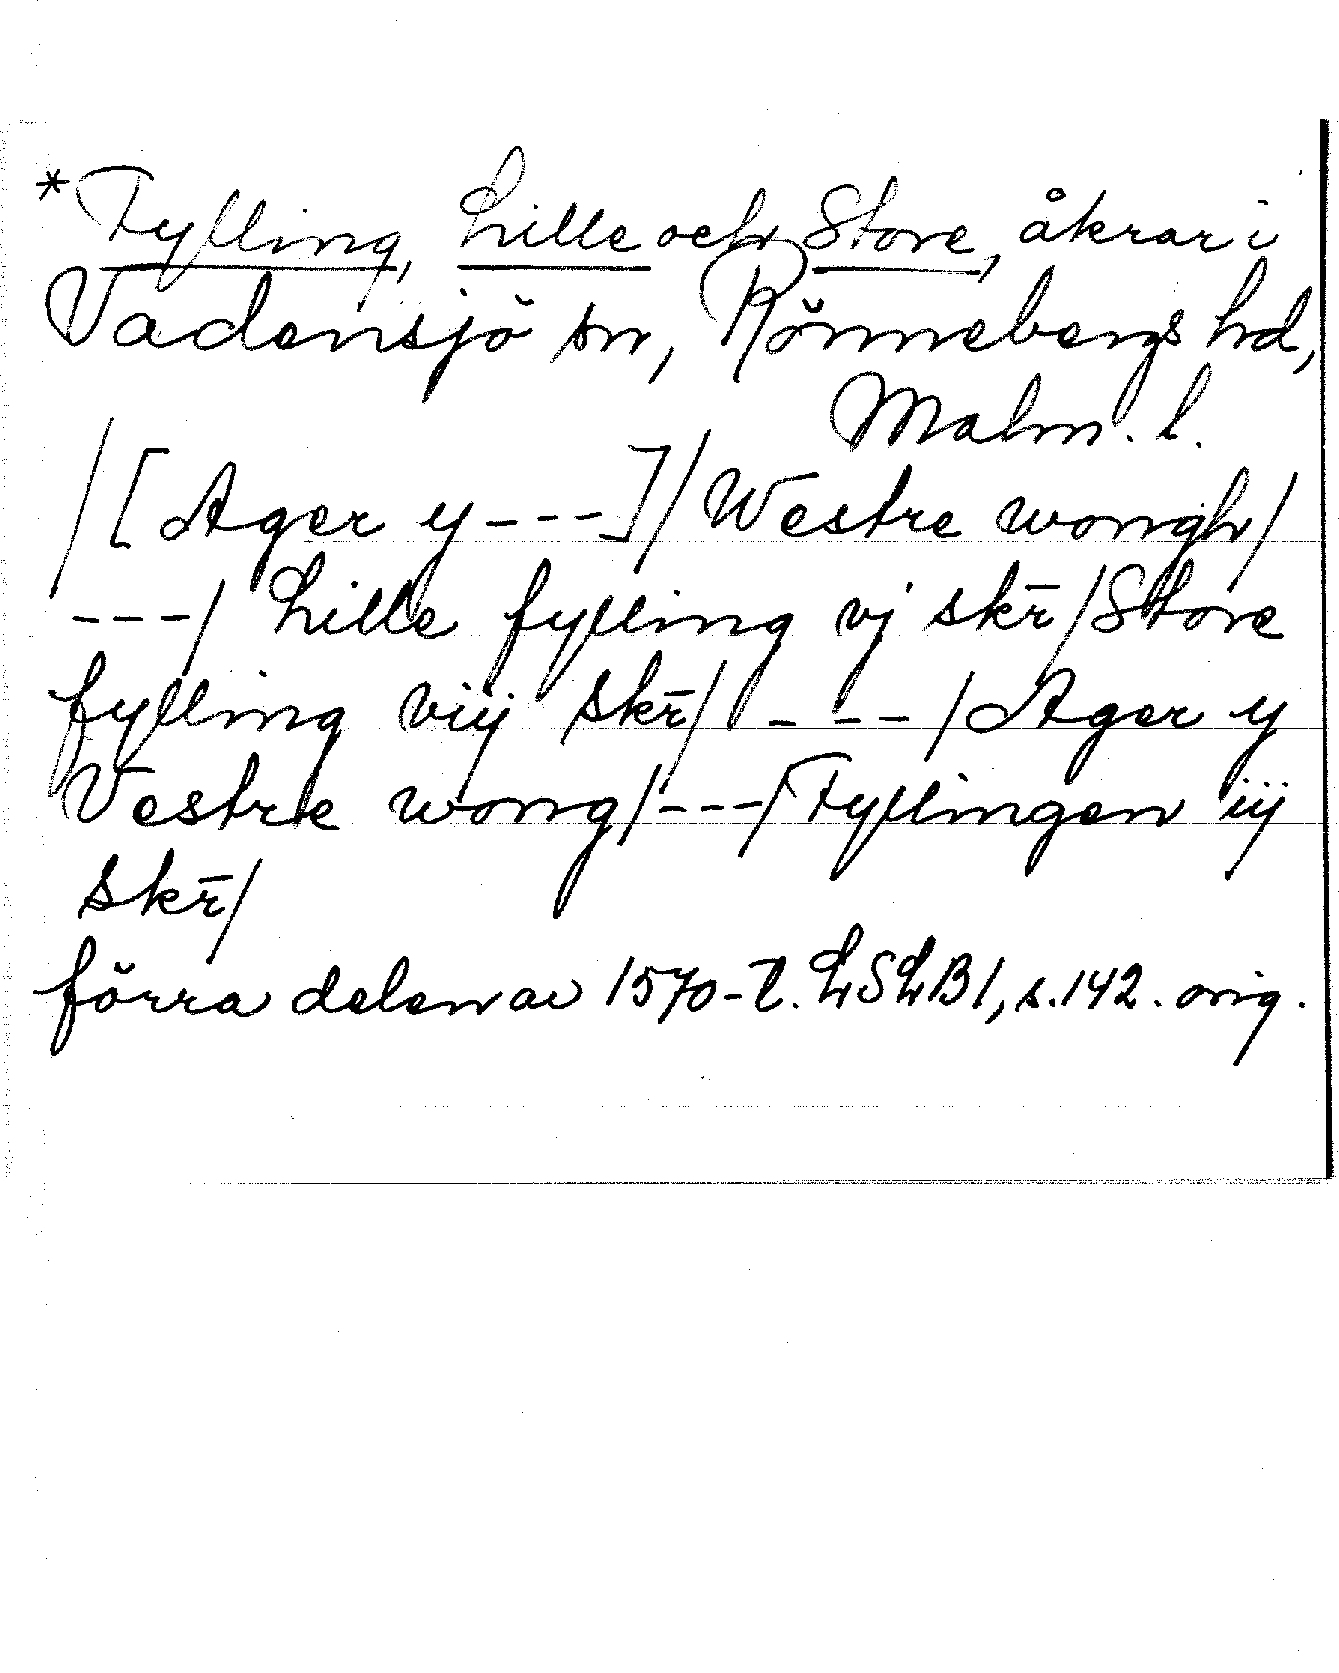 *Fylling, Lille och Store, åkrar i
Vadensjö sn, Rönnebergs hd,
Malm. l.
/[Ager y ---]/Westre wongh/
---/ Lille fylling vj skr̄/Store
fylling viij skr̄/ - --/Ager y
Vestre wong/---/Fyllingen iij
skr̄/
förra delen av 1570-t. LSLB1, s.142. orig.